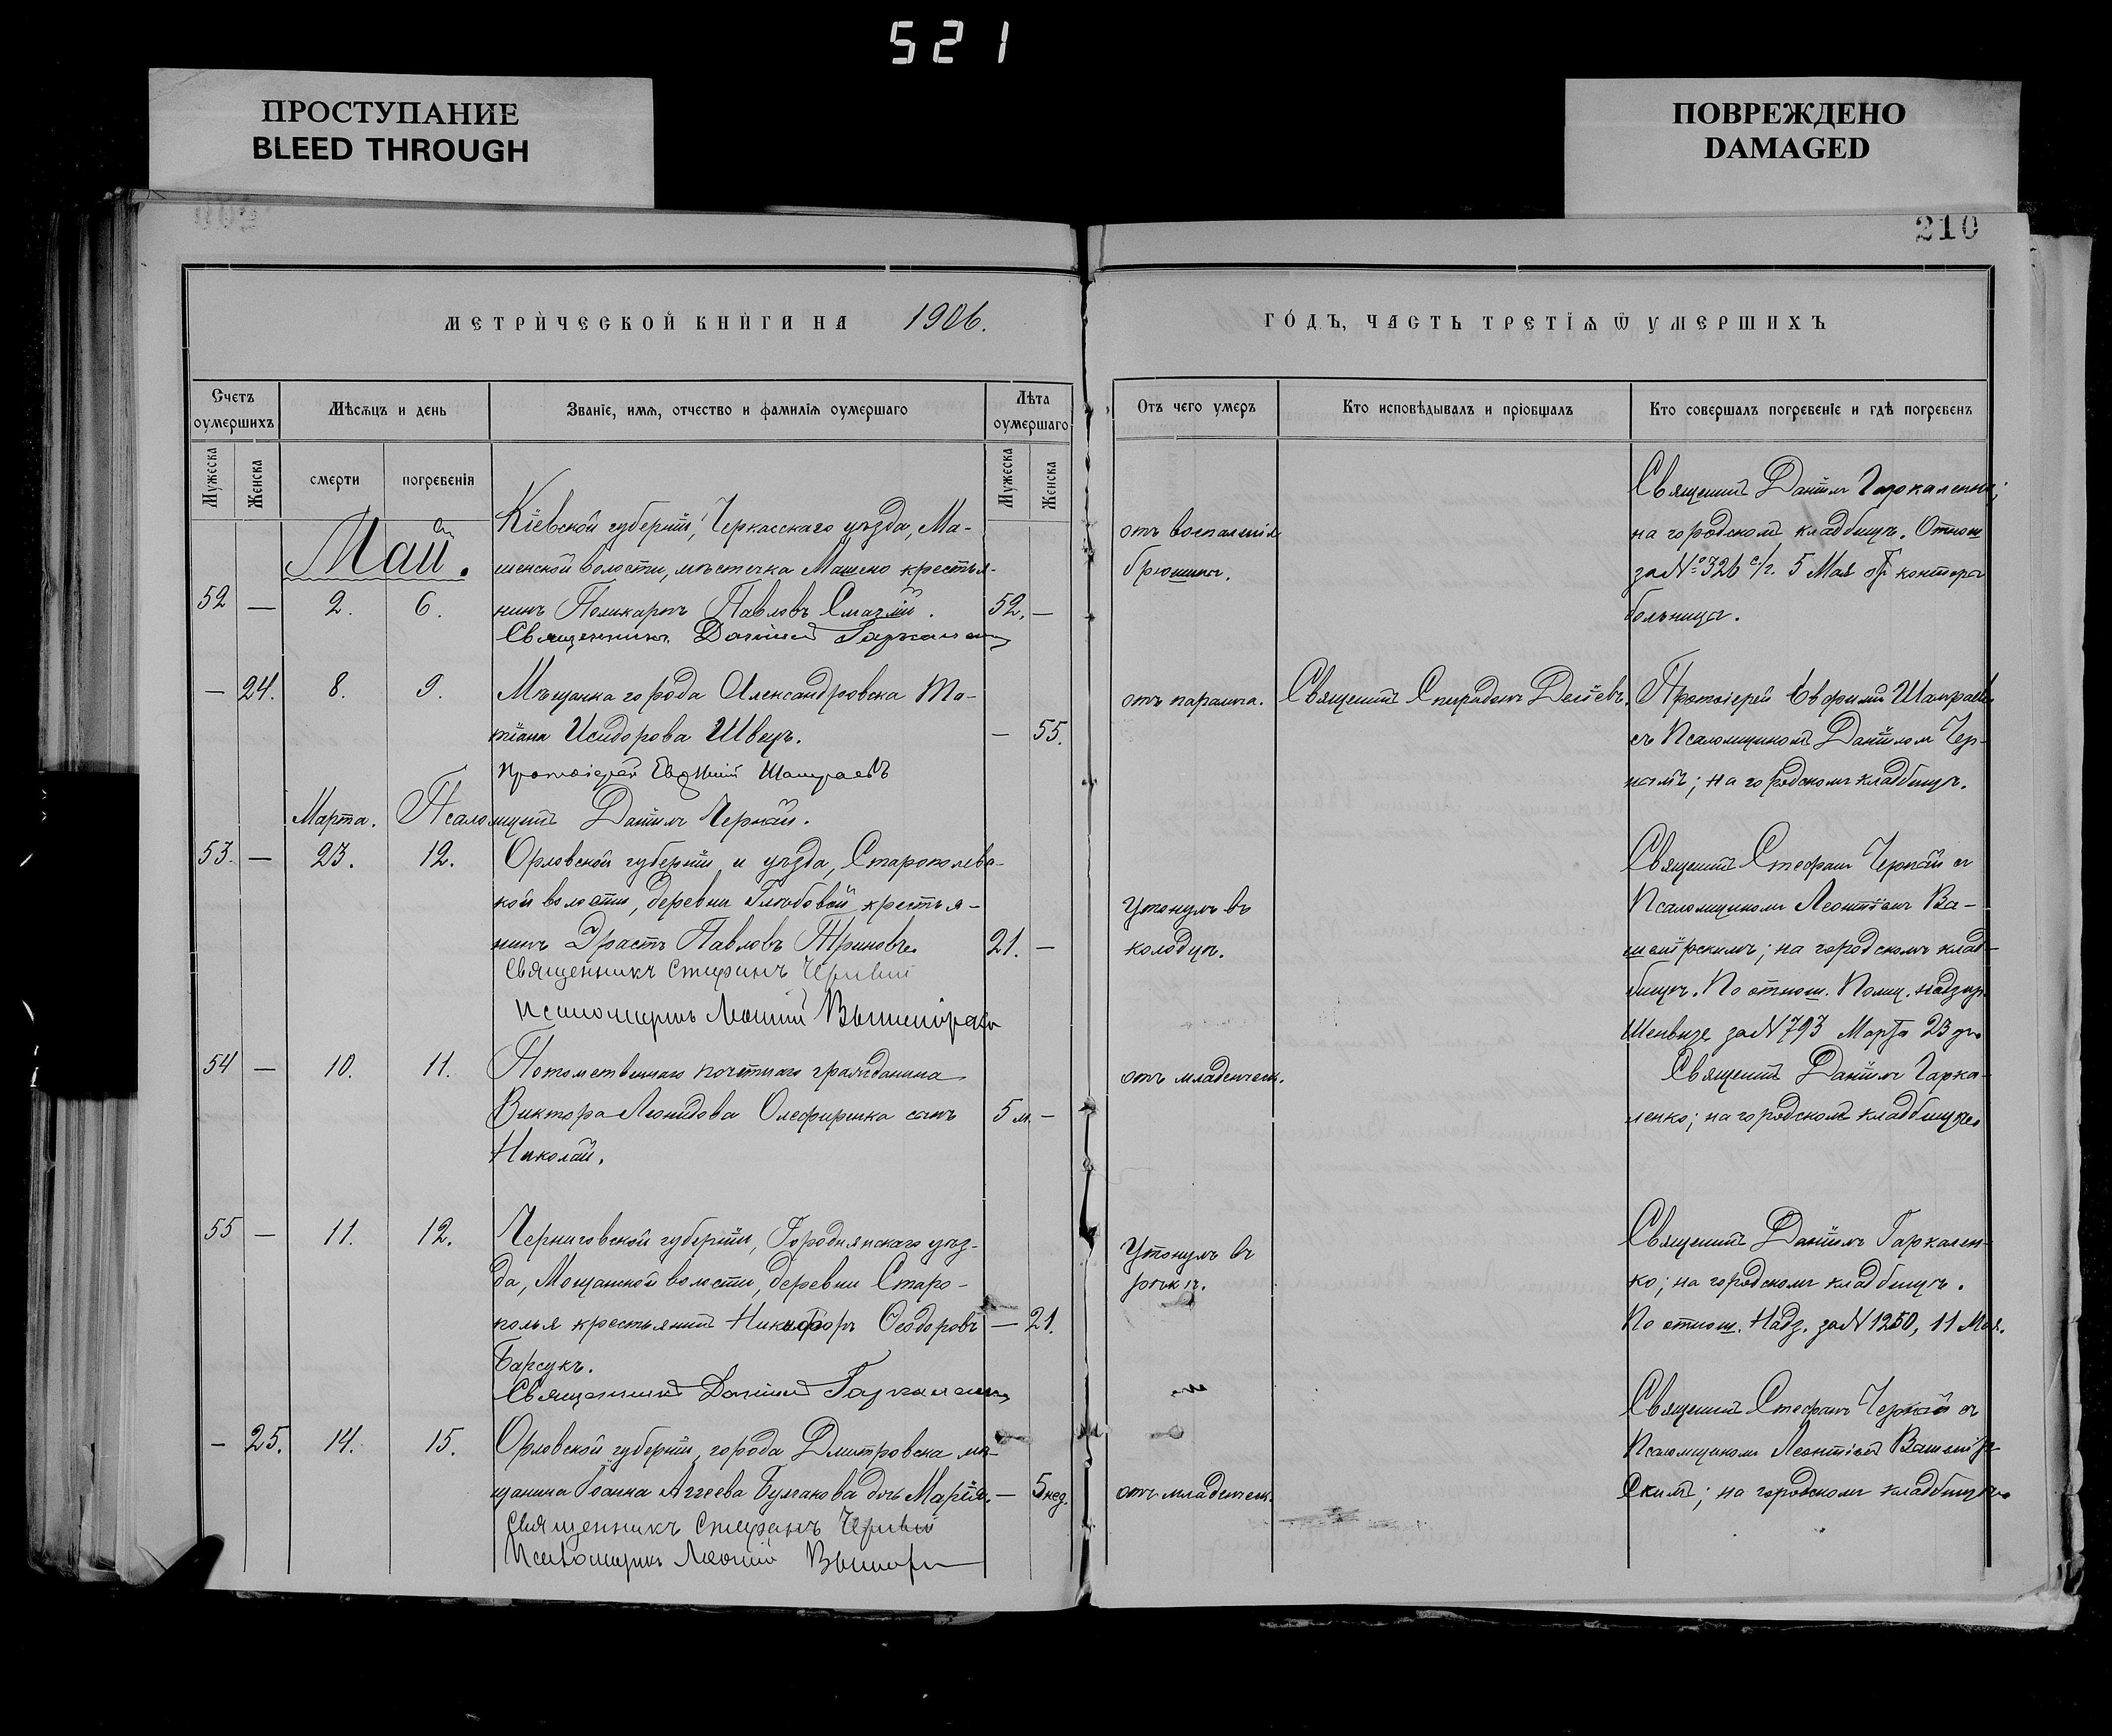 521
ПРОСТУПАНИЕ
BLEED THROUGH
ПОВРЕЖДЕНО
DAMAGED
210
МЕТРИЧЕСКОЙ КНИГИ НА 1906.
ГОДЪ, ЧАСТЬ ТРЕТІѦ Ѿ УМЕРШИХЪ
Счетъ оумершихъ
Мѣсяцъ и день
Званіе, имя, отчество и фамилія оумершаго
Лѣта оумершаго
Отъ чего умеръ
Кто исповѣдывалъ и пріобщалъ
Кто совершалъ погребеніе и гдѣ погребенъ
Мужеска
Женска
смерти
погребенія
Мужеска
Женска
Май.
Кіевской губерніи, Черкасскаго уѣзда, Ма-
шенской волости, мѣстечка Машено крестья-
52 — 2. 6. нинъ Поликарпъ Павловъ 52. —
Священникъ Даніилъ Гаркаленко
отъ воспаленія
брюшины.
Священникъ Даніилъ Гаркаленко;
на городскомъ кладбищѣ. Отнош
за № 326 с/г. 5 Мая отъ конторы
больницы.
— 24. 8. 9. Мѣщанка города Александровска Та-
тіана Исидорова Швецъ. — 55.
Протоіерей Евфимій
Псаломщикъ Даніилъ Черный.
отъ паралича.
Священникъ Спиридонъ
Протоіерей Евфимій
съ Псаломщикомъ Даніиломъ Чер-
нымъ; на городскомъ кладбищѣ.
Марта.
53. — 23. 12. Орловской губерніи и уѣзда,
кой волости, деревни крестья-
нинъ Эрастъ Павловъ 21. —
Священникъ Стефанъ
Псаломщикъ Леонтій
Утонулъ въ
колодцѣ.
Священникъ Стефанъ съ
Псаломщикомъ Леонтіемъ
на городскомъ клад-
бищѣ. По отнош. Полиц. Надзир.
за № 793 Марта 23 дня
54 — 10. 11. Потомственнаго почетнаго гражданина
Виктора Леонидова Олефиренка сынъ 5 м. —
Николай.
отъ младенческ.
Священникъ Даніилъ Гарка-
ленко; на городскомъ кладбищѣ.
55 — 11. 12. Черниговской губерніи, Городнянскаго уѣз-
да, волости, деревни Старо-
полья крестьянинъ Никифоръ Ѳеодоровъ — 21.
Барсукъ.
Священникъ Даніилъ Гаркаленко
Утонулъ въ
рѣкѣ.
Священникъ Даніилъ Гаркален-
ко; на городскомъ кладбищѣ.
По отнош. Надз. за № 1250, 11 Мая.
— 25. 14. 15. Орловской губерніи, города Дмитровска мѣ-
щанина Іоанна Аггеева Булгакова дочь Марія. — 5 нед.
Священникъ Стефанъ
Псаломщикъ Леонтій
отъ младенческ.
Священникъ Стефанъ съ
Псаломщикомъ Леонтіемъ
скимъ; на городскомъ кладбищѣ.